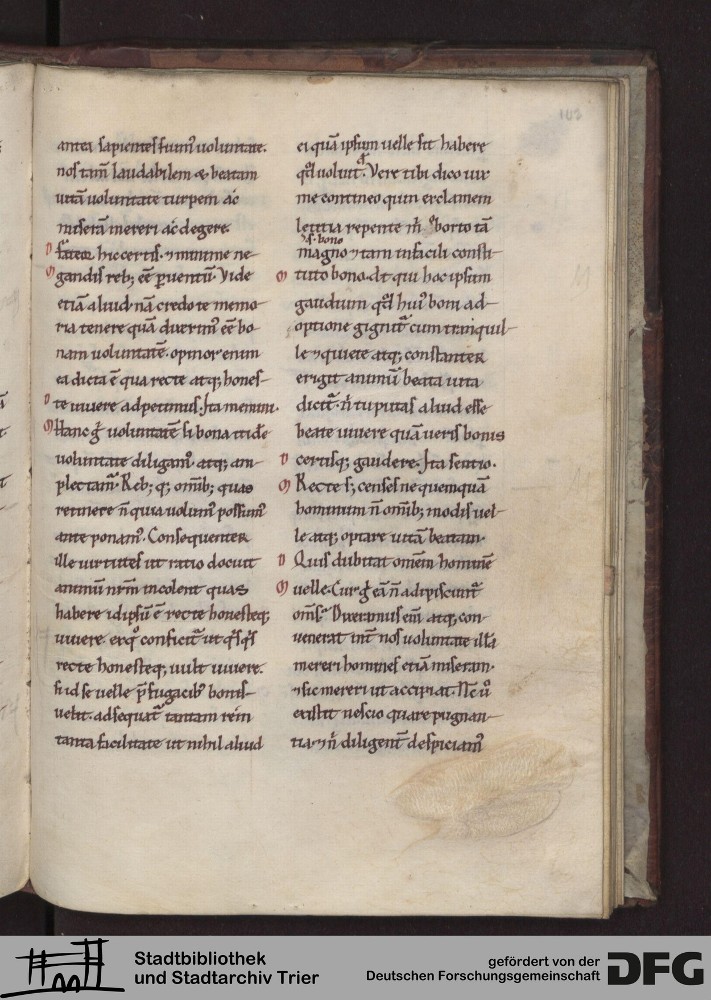 103
antea sapientes fuim̄ uoluntate.
nos tam̄ laudabilem & beatam
uitā uoluntate turpem ac
miserā mereri ac degere.
fateor hic certis. ⁊ minime ne-
gandis reb; eē ꝑuentū. Vide
etiā aliud nā credo te memo-
ria tenere quā dixerim̄ eē bo-
nam uoluntatē. opinor enim
ea dicta ē qua recte atq; hones-
te uiuere adpetimus. Ita memini.
Hanc ḡ uoluntatē si bona itidē
uoluntate diligam̄. atq; am-
plectam̄. Reb; q; omīb; quas
retinere n̄ quia uolum̄ possum̄
ante ponam̄. Consequenter
ille uirtutes ut ratio docuit
animū nr̄m incolent quas
habere idipsū ē recte honesteq;
uiuere. exq̊ conficit̄ ut qͥsqͥs
recte honesteq; uult uiuere.
si id se uelle p̄ fugacib' bonis
uelit. adsequat̄ tantam rem
tanta facilitate ut nihil aliud
ei quā ipsum uelle sit habere
qd̄ uoluit. Vere tibi dico uix
me contineo quin exclamem
letitia repente m̄ oborto tā
.s. bono
magno ⁊ tam in facili consti-
tuto bono. dt qui hoc ipsum
gaudium qd̄ hui' boni ad-
optione gignit̄ cum tranquil-
le ⁊ quiete atq; constanter
erigit animū beata uita
dicit̄. n̄ tu putas aliud esse
beate uiuere quā ueris bonis
certisq; gaudere. Ita sentio.
Recte .s; censes ne quemquā
hominum n̄ omīb; modis uel-
le atq; optare uitā beatam.
Quis dubitat omēm hominē
uelle. Cur ḡ eā n̄ adipiscunt̄
omīs. Dixeramus eī atq; con-
uenerat int̄ nos uoluntate illā
mereri homines etiā miseram.
⁊ sic mereri ut accipiat. Nc̄ u̇
existit nescio quare pugnan-
tia ⁊ n̄ diligent̄ despiciam̄
Stadtbibliothek
und Stadtarchiv Trier
gefördert von der
Deutschen Forschungsgemeinschaft
DFG